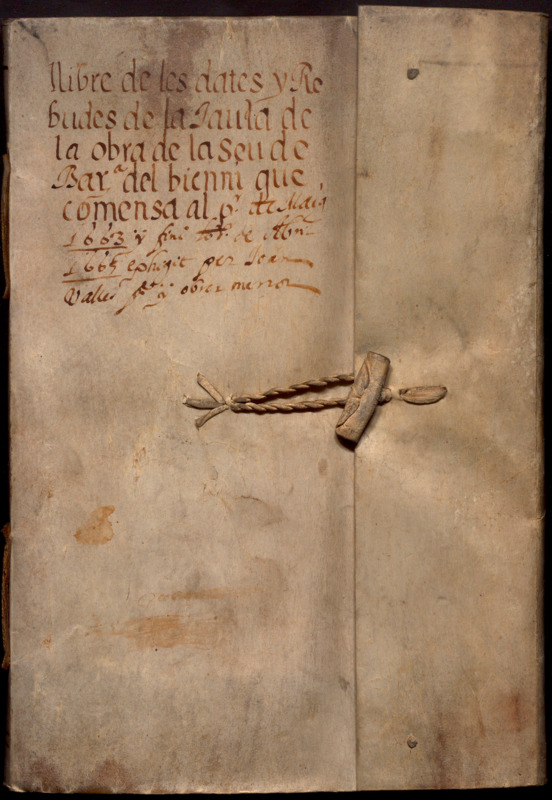 llibre de les dates y Re
budes de la Taula de
la obra de la Seu de
Bar.ª del bienni que
comensa al p.r de Maig
1663 y fini de
1665 per Joan
Valles obrer menor